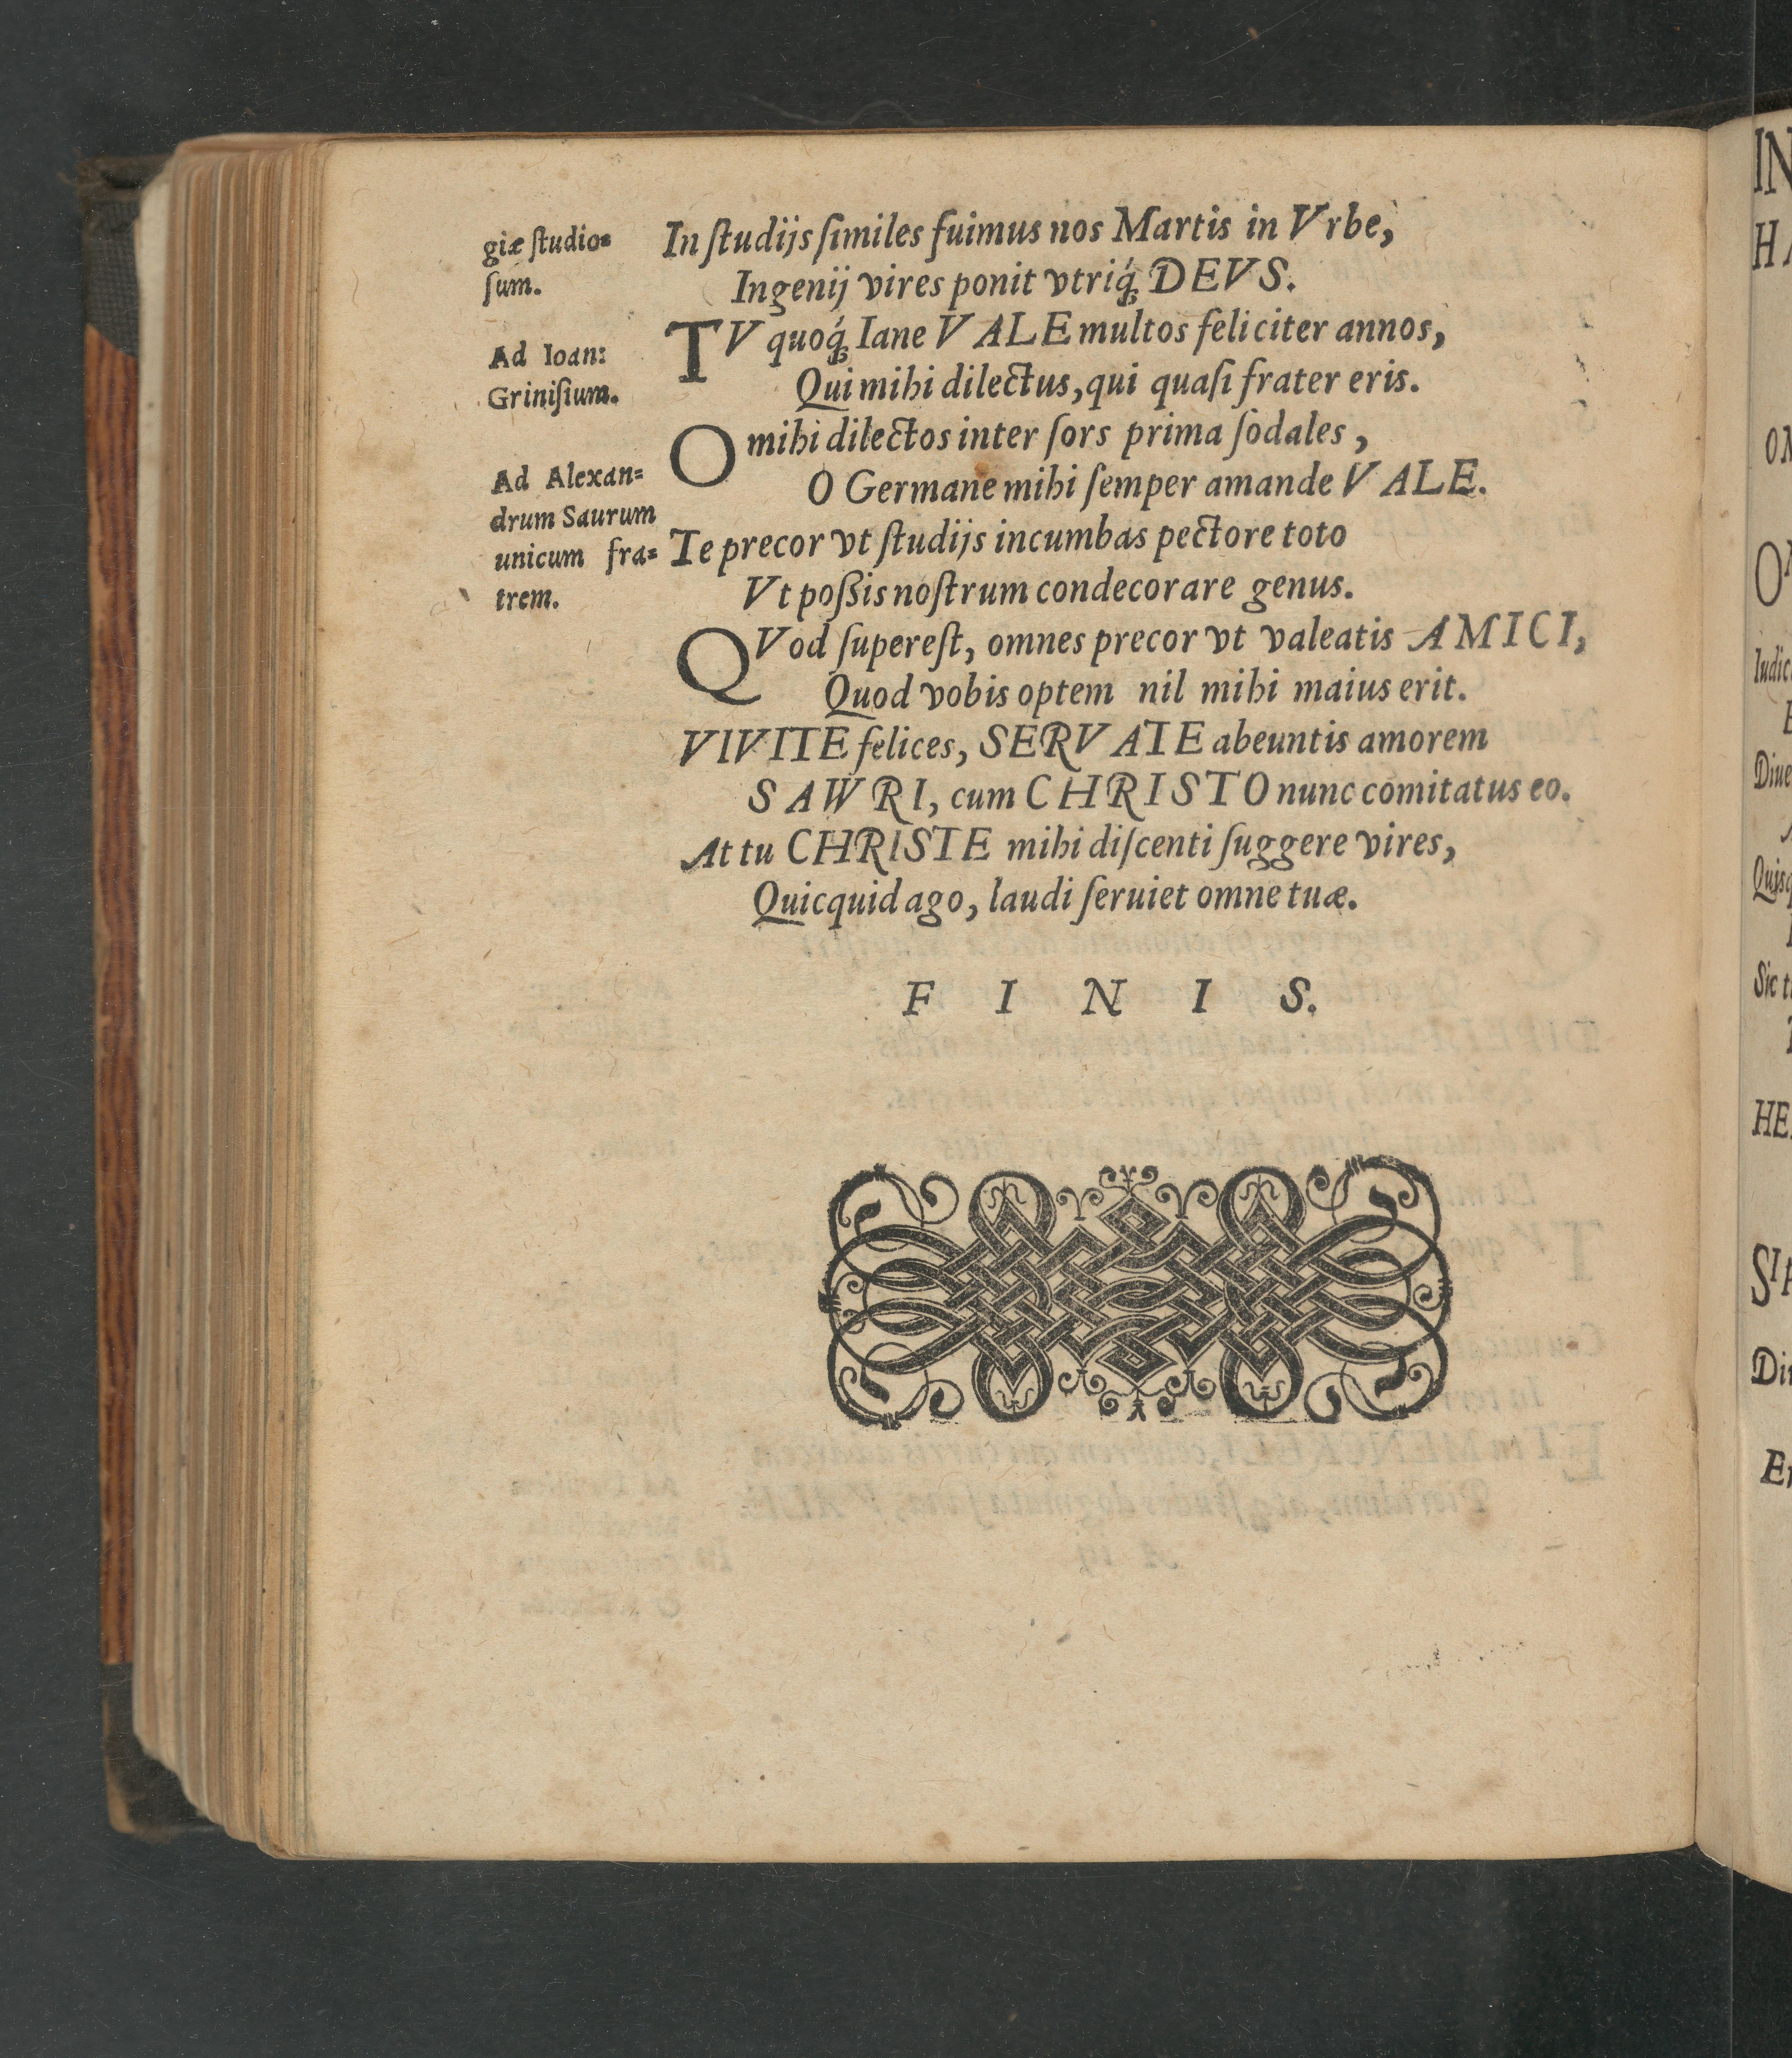 giæ ſtudio⸗
ſum.
In ſtudijs ſimiles fuimus nos Martis in Vrbe,
Ingenij vires ponit vtriq́; DEVS.
Ad Ioan:
Griniſium.
TV quoq́; Iane VALE multos feliciter annos,
Qui mihi dilectus, qui quaſi frater eris.
Ad Alexan⸗
drum Saurum
unicum fra⸗
trem.
O mihi dilectos inter ſors prima ſodales,
O Germane mihi ſemper amande VALE.
Te precor vt ſtudijs incumbas pectore toto
Vt poßis noſtrum condecorare genus.
QVod ſupereſt, omnes precor vt valeatis AMICI,
Quod vobis optem nil mihi maius erit.
VIVITE felices, SERVATE abeuntis amorem
SAWRI, cum CHRISTO nunc comitatus eo.
At tu CHRISTE mihi diſcenti ſuggere vires,
Quicquid ago, laudi ſeruiet omne tuæ.
FINIS.
IN
ON
Sic
HE